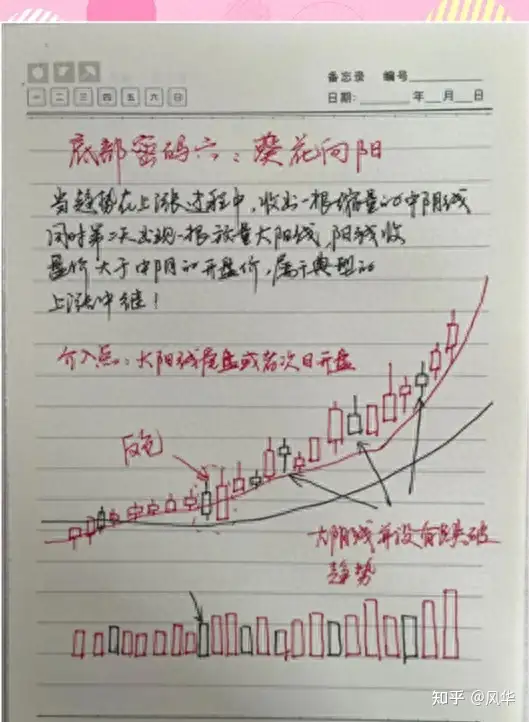 备忘录 编号
一 二 三 四 五 六 日
日期: 年 月 日
底部密码六：葵花向阳
当趋势在上涨过程中，收出一根缩量的中阴线
同时第二天出现一根放量大阳线，阳线收
盘价大于中阴的开盘价，属于典型的
上涨中继！
介入点：大阳线尾盘或者次日开盘
反包
大阴线并没有跌破
趋势
知乎 @风华